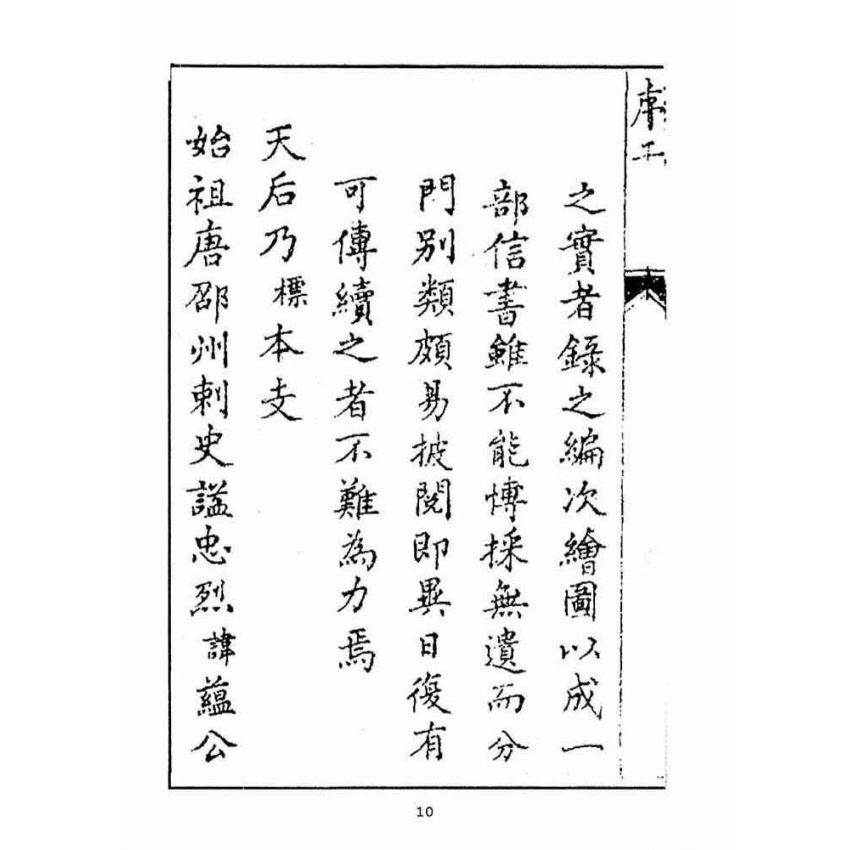 之實者錄之編次繪圖以成一
部信書雖不能愽採無遺而分
門別類頗易披閱即異日復有
可傳續之者不難為力焉
天后乃標本支
始祖唐邵州刺史謚忠烈諱蘊公
10